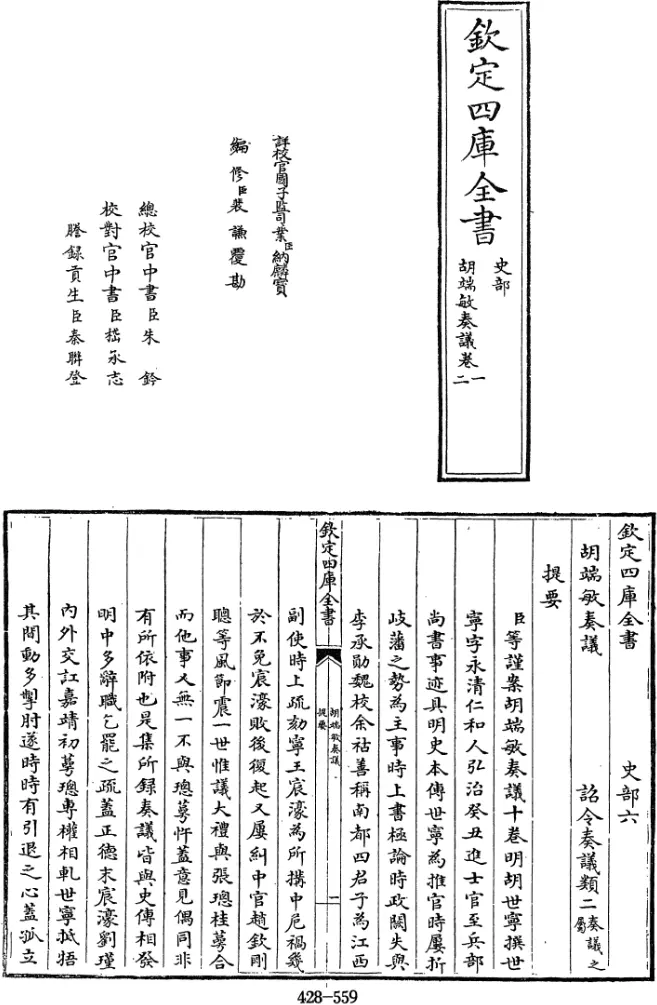 欽定四庫全書
史部
胡端敏奏議卷一
二
詳校官國子監司業臣納麟寶
編修臣裴謙覆勘
總校官中書臣朱鈐
校對官中書臣嵇承志
謄録貢生臣秦聨登
欽定四庫全書　史部六
胡端敏奏議　詔令奏議類二奏議之屬
提要
臣等謹案胡端敏奏議十卷明胡世寧撰世
寧字永清仁和人弘治癸丑進士官至兵部
尚書事迹具明史本傳世寧為推官時屢折
岐藩之勢為主事時上書極論時政闕失與
李承勛魏校余祜善稱南都四君子為江西
欽定四庫全書
胡端敏奏議
提要
一
副使時上疏劾寧王宸濠為所搆中危禍幾
於不免宸濠敗後復起又屢糾中官趙欽剛
聰等風節震一世惟議大禮與張璁桂萼合
而他事又無一不與璁萼忤蓋意見偶同非
有所依附也是集所録奏議皆與史傳相發
明中多辭職乞罷之疏蓋正德末宸濠劉瑾
內外交訌嘉靖初萼璁專權相軋世寧抵捂
其間動多掣肘遂時時有引退之心蓋孤立
428-559